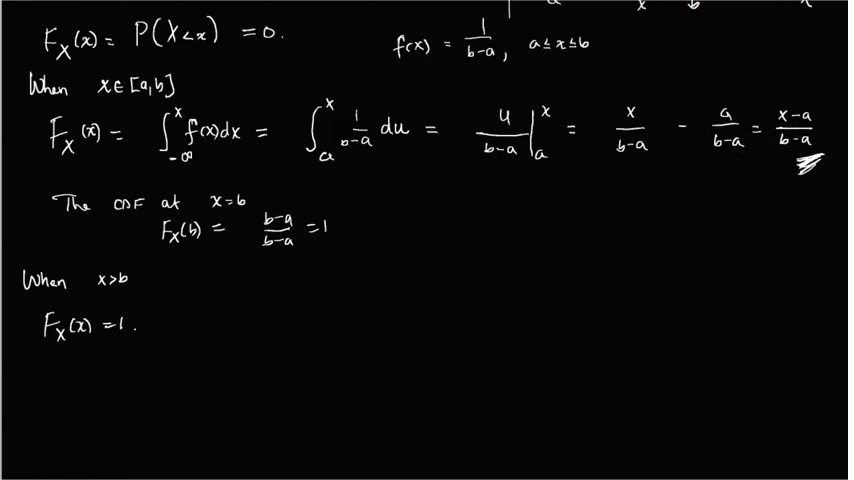 a x b x
F_X(x) = P(X<x) = 0.
f(x) = 1/(b-a), a ≤ x ≤ b
When x ∈ [a,b]
F_X(x) = ∫_{-∞}^{x} f(x)dx = ∫_a^x 1/(b-a) du = u/(b-a) |_a^x = x/(b-a) - a/(b-a) = (x-a)/(b-a)
The CDF at x=b
F_X(b) = (b-a)/(b-a) = 1
When x>b
F_X(x) = 1.